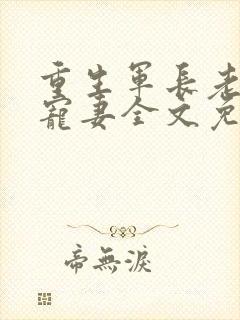 重生軍長老
寵妻全文免
帝無淚